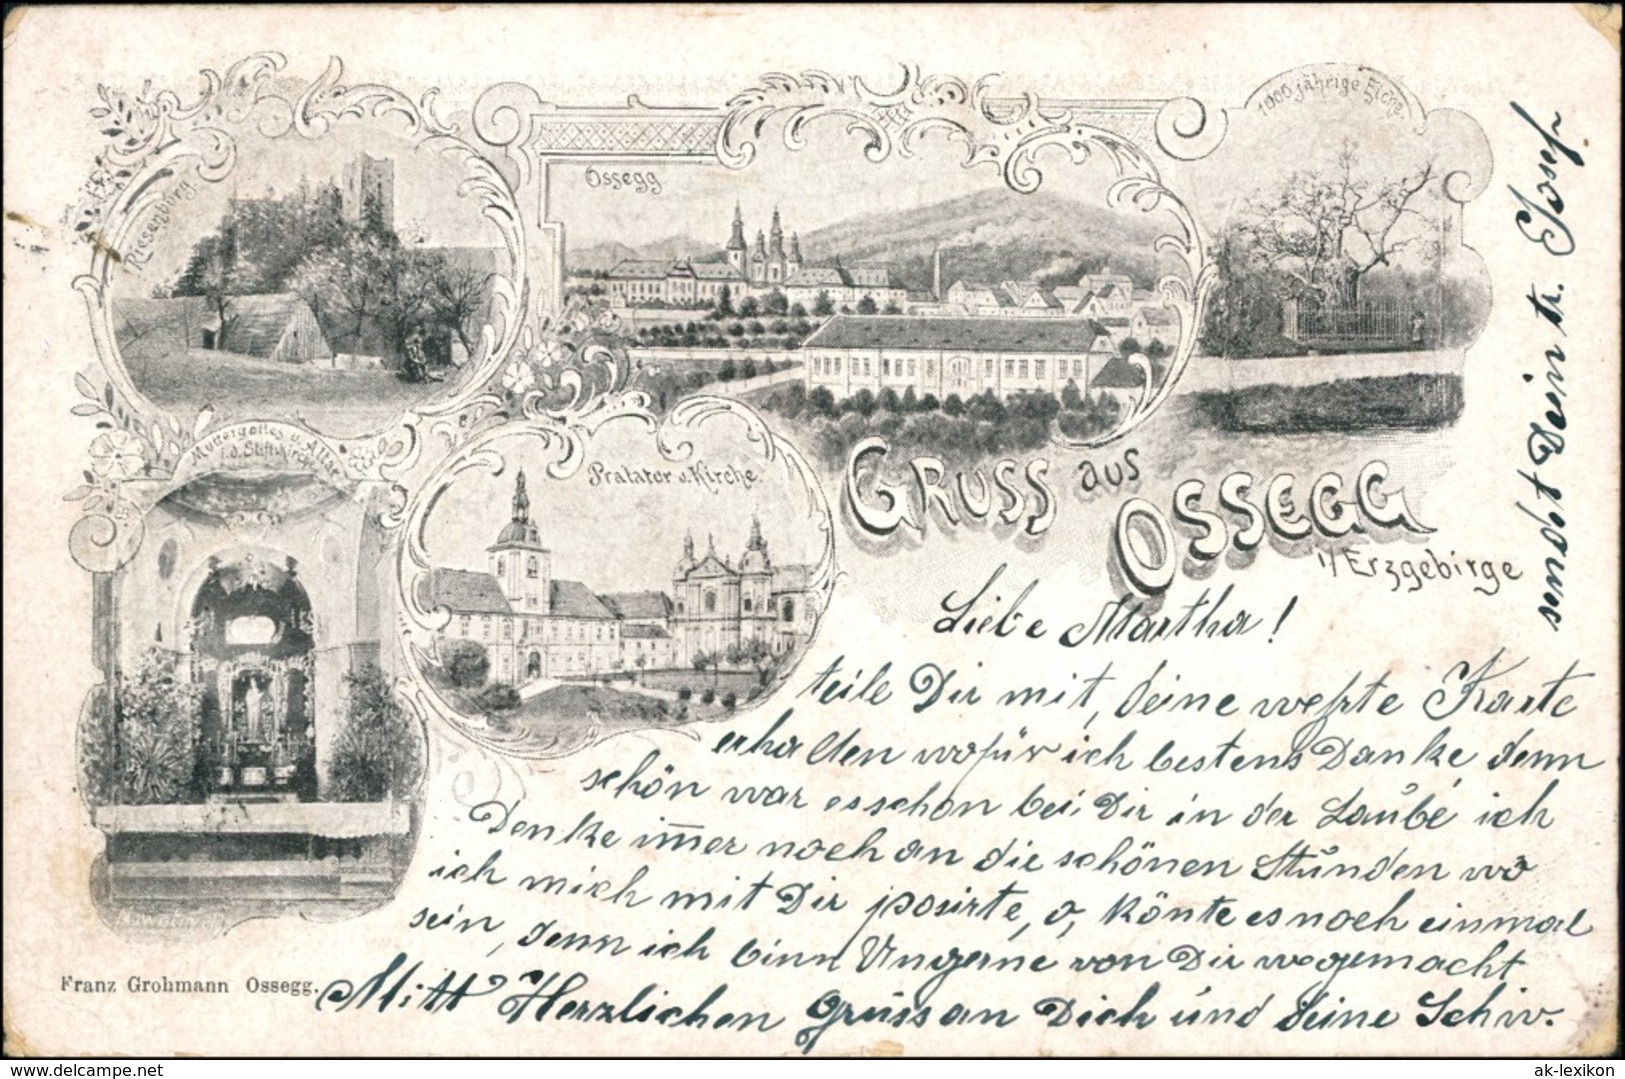 Riesenburg.
Ossegg
1000 jährige Eiche
Muttergottes u. Altar
i. d. Stiftskirche
Pralatur u. Kirche.
GRUSS aus
OSSEGG
i/Erzgebirge
Liebe Martha!
teile Dir mit, deine wehrte Karte
erhalten wofür ich bestens Danke, denn
schön war es schon bei Dir in der Laube ich
Denke imer noch an die schönen Stunden wo
ich mich mit Dir posirte, o, könte es noch einmal
sein, denn ich binn Ungerne von Dir wegemacht
Mitt Herzlichen Gruss an Dich und deine Schw.
sendet Dein tr. Josef
Franz Grohmann Ossegg.
www.delcampe.net
ak_email
ak-lexikon